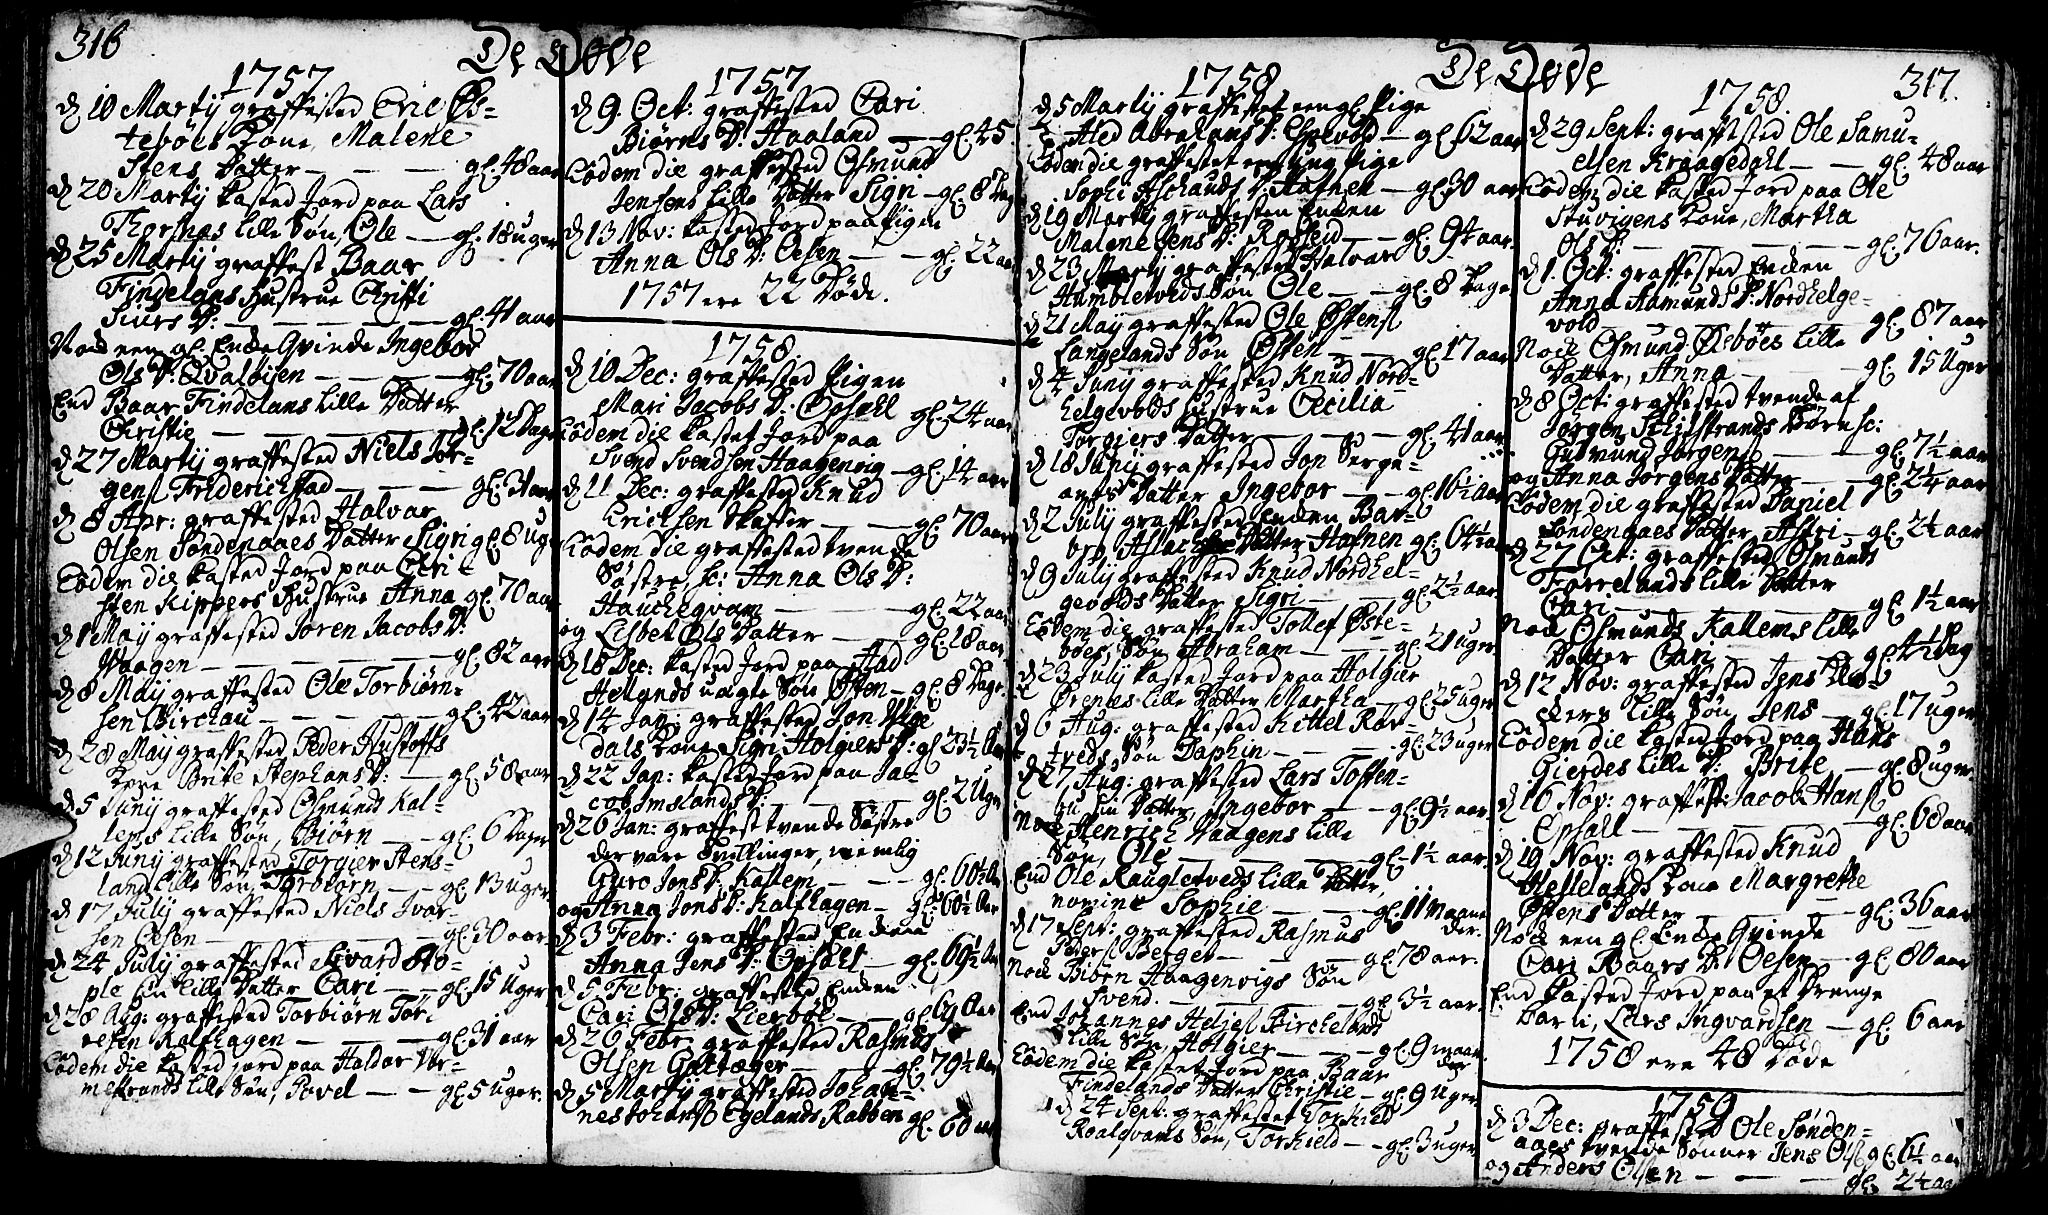 316
De Døde
1757
d 10 Martij graffested Eric Øs-
tebøes Kone, Malene
Stens Datter — — — gl. 48 aar
d 20 Martij kasted Jord paa Lars
Thorsnes lille Søn, Ole — gl. 18 uger
d 25 Martij graffest Baar
Findelans Hustrue Christi
Siurs D: — — — gl. 41 aar
Nock een gl. Enke Qvinde Ingebor
Ols D: Qvaløisen — — — gl. 70 aar
End Baar Findelans lille Datter
Christie — — — gl. 12 Dage
d 27 Martij graffested Niels Jør-
gens Friderichstad — — — gl. 31 aar
d 8 Apr: graffested Halvar
Olsen Søndenaaes Datter Sigri gl. 8 uger
Eodem die kasted Jord paa Chri-
sten Kippers Hustrue Anna gl. 70 aar
d 1 Maij graffested Soren Jacobs D:
Waagen — — — gl. 82 aar
d 8 Maij graffested Ole Torbiørn-
sen Birchau — — — gl. 42 aar
d 28 Maij graffested Peder Rustoffs
Kone Brite Stephans D: — gl. 58 aar
d 5 Junij graffested Osmund Kal-
lems lille Søn, Biørn — gl. 6 Dage
d 12 Junij graffested Torgier Stens-
land lille Søn, Torbiørn — gl. 13 uger
d 17 Julij graffested Niels Ivar-
sen Oesen — — — gl. 30 aar
d 24 Julij graffested Sivard Sto-
ple lille Datter Cari — gl. 15 Uger
d 28 Aug: graffested Torbiørn Tor-
resen Kalfhagen — — gl. 31 aar
Eodem die kasted jord paa Haldor Vor-
mestrands lille Søn, Povel — — gl. 5 uger.
1757
d 9 Oct: graffested Cari
Biørns D: Haaland — gl. 45
Eodem die graffested Osmund
Jensens lille Datter Sigri — gl. 8 Dag
d 13 Nov: kasted Jord paa Pigen
Anna Ols D: Oesen — — gl. 22 aar
1757 ere 22 Døde.
1758
d 10 Dec: graffested Pigen
Mari Jacobs D: Opsahl gl. 24 aar
Eodem die kastet Jord paa
Svend Svendsen Haagenvig — gl. 14 aar
d 11 Dec: graffested Knud
Ericksen Skaffer — — gl. 70 aar
Eodem die graffested tvende
Søstre, sc: Anna Ols D:
Hauchegvam — — — gl. 22 aar
og Lisbet Ols Datter — — gl. 18 aar.
d 18 Dec: kasted Jord paa Aad
Hellands uægte Søn Østen — gl. 8 Dage
d 14 Jan: graffested Jon
dals Kone Sigri Holgiers D: gl. 23½ Aar
d 22 Jan: kasted Jord paa Ja-
cob Imslands D: — — — gl. 2 Uger
d 26 Jan: graffest tvende Søstre
der vare Tvillinger, nemlig
Guro Jons D: Kallem — — gl. 60½ Aar
og Anna Jons D: Kalfhagen — gl. 60½ Aar
d 3 Febr: graffested Enken
Anna Jens D: Opsahl — gl. 66½ Aar
d 5 Febr: graffested Enken
Cari Ols D: Lierbøe — gl. 69 Aar
d 26 Febr: graffested Rasmus
Olsen Galtæger — — gl. 79½ Aar
d 5 Martij graffested Johan-
nes Johans Egelands Kabben gl. 60 aar
317
De Døde
1758
d 5 Martij graffestet een gl. Pige
Aled Abrahams D: Espevold — gl. 62 aar
Eodem die graffestet een ung Pige
Sophi Aschauds D: Hafnen — gl. 30 aar
d 19 Martij graffesten Enken
Malene Jens D: Ropeid — gl. 94 aar.
d 23 Martij graffested Halvar
Humbletveds Søn Ole — — gl. 8 Dage
d 21 Maij graffested Ole Østens
Langelands Søn Østen — gl. 17 aar
d 4 Junij graffested Knud Nord-
helgevolds Hustrue Cecilia
Torgiers Datter — — — gl. 41 aar
d 18 Junij graffested Jon Serge-
antz Datter Ingebor — — gl. 16½ Aar
d 2 Julij graffested Enken Bar-
bro Aslachs Datter Hafnen gl. 64½ aar
d 9 Julij graffested Knud Nordhel-
gevolds Datter Sigri — — gl. 2½ aar
Eodem die graffested Tollef Øste-
bøes, Søn Abraham — — gl. 21 uger
d 23 Julij kasted Jord paa Holgier
Ørenæs lille Datter Martha — gl. 25 uger
d 6 Aug: graffested Kittel Rør-
tveds Søn Daphin — — — gl. 23 uger
d 27 Aug: graffested Lars Toften-
bu sin Datter Ingebor — — gl. 9½ aar
Nock Henrich Vaagens lille
Søn, Ole — — — gl. 1½ aar.
End Ole Raugletveds lille Datter,
nomine Sophie — — gl. 11 Maane
der.
d 17 Sept: graffested Rasmus
Peders Berger — — — gl. 78 aar.
Nock Biørn Haagenvigs Søn
Svend. — — — gl. 3½ aar.
End Johannes Heljes Bircheland
lille Søn, Holgier — — — gl. 9 maan
der
Eodem die kastet Jord paa Baar
Findelands Datter Christie — gl. 9 Uger
d 24 Sept: graffestet Torkield
Roalqvams Søn, Torkield — gl. 3 uger
1758
d 29 Sept: graffested Ole Samu-
elsen Kraagedahl — — gl. 48 aar
Eodem die kasted Jord paa Ole
Stuvigens Kone, Martha
Ols D: — — — gl. 76 aar.
d 1 Oct: graffested Enken
Anna Aamunds D: Nordhelge-
vold — — — gl. 87 aar
Nock Osmund Øebøes lille
Datter, Anna — — — gl. 15 Uger
d 8 Oct: graffested tvende af
Jørgen Schiestrands Børn sc:
Gudmund Jørgens — — gl. 7½ aar
og Anna Jørgens Datter — — gl. 2¼ aar
Eodem die graffested Daniel
Søndenaaes Datter Astri — gl. 2¼ aar
d 22 Oct: graffested Osmunds
Forrelands lille Datter
Cari — — — gl. 1½ aar
Nock Osmunds Kallems lille
Datter Cari — — — gl. 4½ Dag
d 12 Nov: graffested Jens
lille Søn, Jens — gl. 17 uger
Eodem die kasted Jord paa Hans
Gierdes lille D: Brite — gl. 8 uger
d 16 Nov: graffest: Jacob Hans
Opsall — — — gl. 68 aar
d 19 Nov: graffested Knud
Hesselands Kone Margrethe
Østens Datter — — — gl. 36 aar
Nock een gl. Enke Qvinde
Cari Baars D: Oesen — gl. 80 aar
End kasted Jord paa et Drenge
barn, Lars Ingvardsen — gl. 6 aar
1758 ere 48 Døde
1759
d 3 Dec: graffested Ole Sønden-
aaes tvende Sønner Jens Ols gl. 6½ aar
og Anders Olsen — — — gl. 2¼ aar